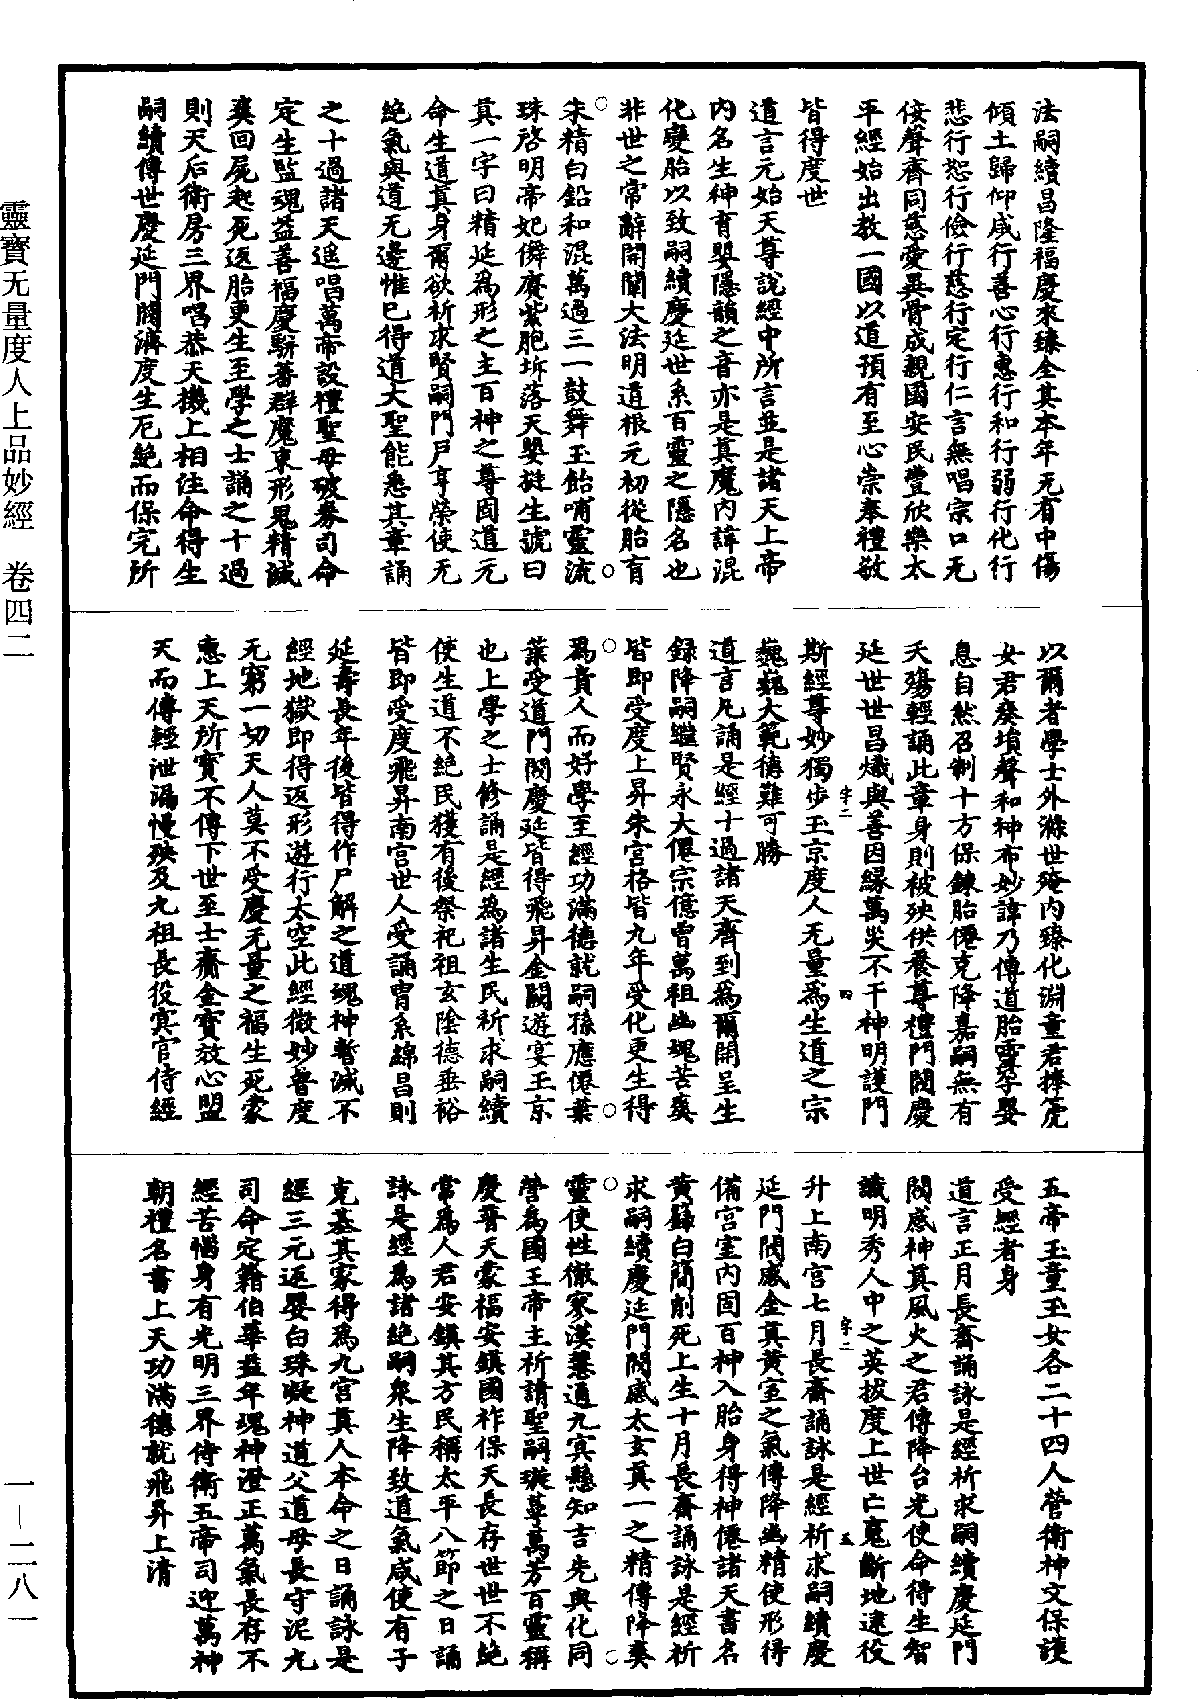 法嗣續昌隆福慶來臻全其本年无有中傷
傾土歸仰咸行善心行惠行和行弱行化行
悲行恕行儉行慈行定行仁言無唱宗口无
佞聲齊同慈愛異骨成親國安民豐欣樂太
平經始出教一國以道預有至心崇奉禮敬
皆得度世
道言元始天尊說經中所言並是諸天上帝
內名生神育嬰隱韻之音亦是真魔內諱混
化變胎以致嗣續慶延世系百靈之隱名也
非世之常辭開闡大法明道根元初從胎育
朱精白鉛和混萬過三一鼓舞玉飴哺靈流
珠啓明帝妃儕賡紫胞坼落天嬰挺生號曰
真一字曰精延為形之主百神之尊固道元
命生道真身爾欲祈求賢嗣門戶享榮使无
絕氣與道无邊惟已得道大聖能悉其章誦
之十過諸天遥唱萬帝設禮聖母破券司命
定生監魂益善福慶駢蕃群魔束形鬼精滅
爽回屍起死返胎更生至學之士誦之十過
則天后衛房三界唱恭天機上相注命得生
嗣續傳世慶延門閥濟度生厄絕而保完所
以爾者學士外滌世䅖內臻化淵童君捧箎
女君奏塤聲和神布妙諱乃傳道胎靈孕嬰
息自然召制十方保鍊胎僊克降嘉嗣無有
夭殤輕誦此章身則被殃供養尊禮門閥慶
延世世昌熾與善因緣萬灾不干神明護門
斯經尊妙獨步玉京度人无量為生道之宗
巍巍大範德難可勝
道言凡誦是經十過諸天齊到為爾開呈生
錄降嗣繼賢永大僊宗億曾萬祖幽魂苦爽
皆即受度上昇朱宮格皆九年受化更生得
為貴人而好學至經功滿德就嗣孫應僊葉
葉受道門閥慶延皆得飛昇金闕遊宴玉京
也上學之士修誦是經為諸生民祈求嗣續
使生道不絕民獲有後祭祀祖玄陰德垂裕
皆即受度飛昇南宮世人受誦胄系綿昌則
延壽長年後皆得作尸解之道魂神暫滅不
經地獄即得返形遊行太空此經微妙普度
无窮一切天人莫不受慶无量之福生死蒙
惠上天所寶不傳下世至士齎金寶效心盟
天而傳輕泄漏慢殃及九祖長役冥官侍經
五帝玉童玉女各二十四人營衛神文保護
受經者身
道言正月長齋誦詠是經祈求嗣續慶延門
閥感神真風火之君傳降台光使命得生智
識明秀人中之英拔度上世亡䰟斷地逮役
升上南宮七月長齋誦詠是經祈求嗣續慶
延門閥感金真黃室之氣傳降幽精使形得
備宮室內固百神入胎身得神僊諸天書名
黃籙白簡削死上生十月長齋誦詠是經祈
求嗣續慶延門閥感太玄真一之精傳降爽
靈使性徹寥漠慧通九冥懸知吉先與化同
營為國王帝主祈請聖嗣璇萼萬芳百靈稱
慶普天蒙福安鎮國祚保天長存世世不絕
常為人君安鎮其方民稱太平八節之日誦
詠是經為諸絕嗣衆生降致道氣咸使有子
克基其家得為九宮真人本命之日誦詠是
經三元返嬰白珠凝神道父道母長守泥丸
司命定籍伯華益年魂神澄正萬氣長存不
經苦惱身有光明三界侍衛五帝司迎萬神
朝禮名書上天功滿德就飛昇上清
字二
四
字二
五
靈寶无量度人上品妙經　卷四二
一—二八一